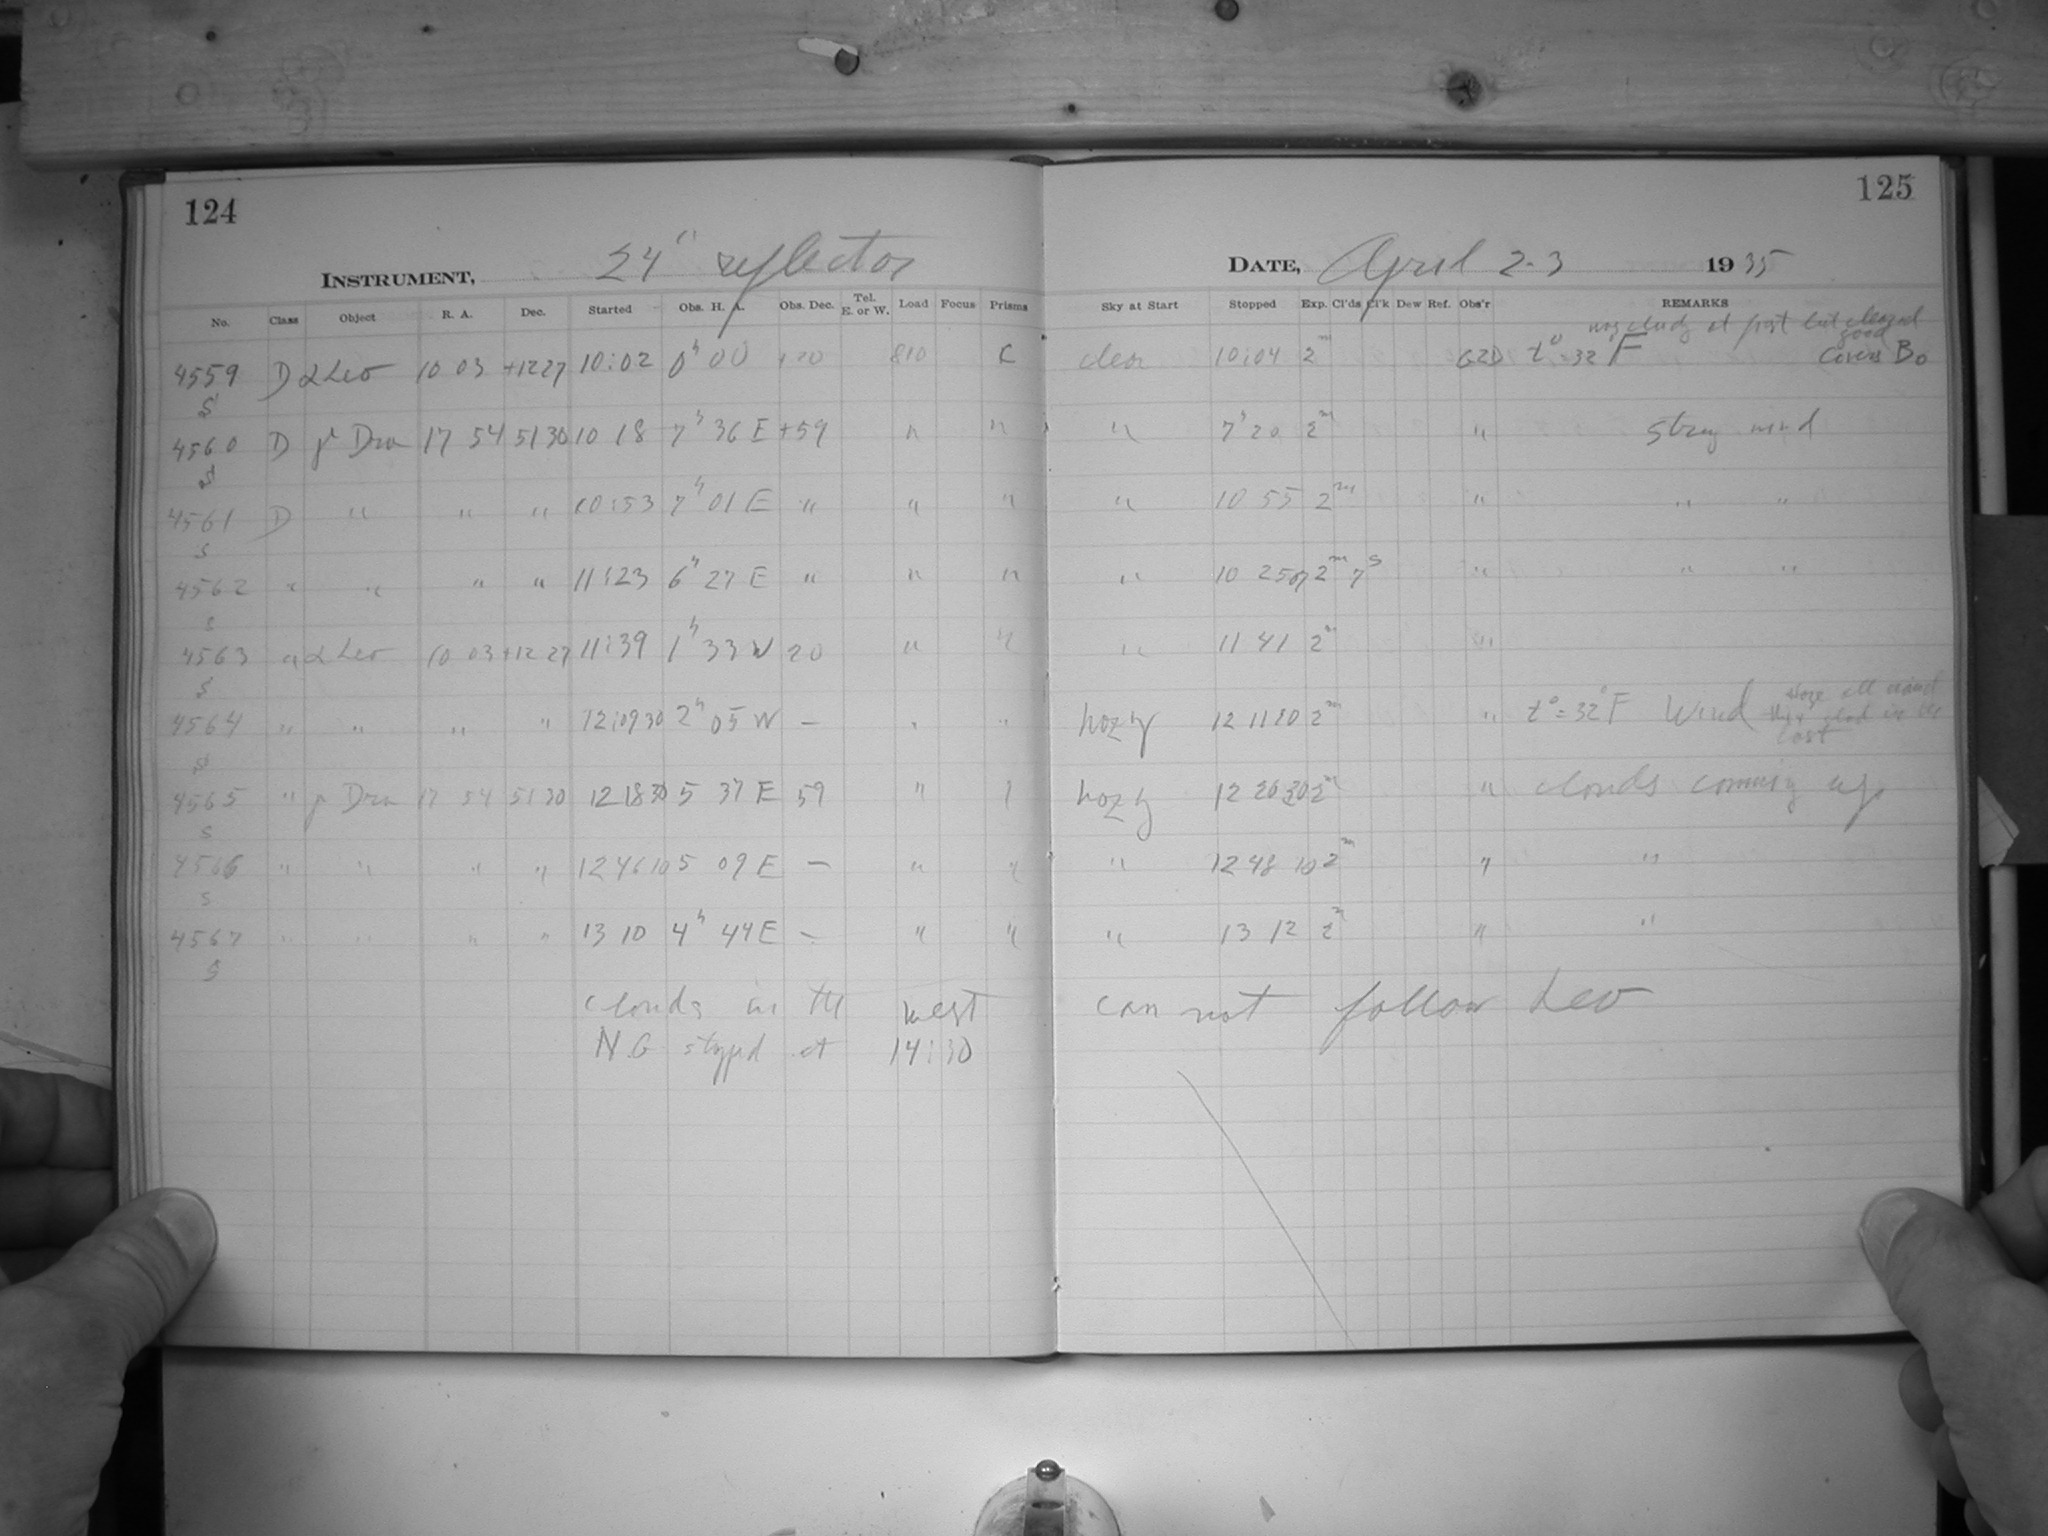 124
INSTRUMENT, 24" reflector
No. Class Object R. A. Dec. Started Obs. H. A. Obs. Dec. Tel. E. or W. Load Focus Prisms
4559 D α Leo 10 03 +12 27 10:02 0h 00 +20 810 C
S
4560 D γ Dra 17 54 51 30 10 18 7h 36 E +59 " "
S
4561 D " " " 10:53 7h 01 E " " "
S
4562 " " " " 11:23 6h 27 E " " "
S
4563 " α Leo 10 03 +12 27 11:39 1h 33 W 20 " "
S
4564 " " " " 12:09 30 2h 05 W — " "
S
4565 " γ Dra 17 54 51 30 12 18 30 5 37 E 59 " "
S
4566 " " " " 12 46 10 5 09 E — " "
S
4567 " " " " 13 10 4h 44 E — " "
S
clouds in the west
N.G stopped at 14:30
125
DATE, April 2-3 1935
Sky at Start Stopped Exp. Cl'ds Cl'k Dew Ref. Obs'r REMARKS
was cloudy at first but cleared good
clear 10:04 2m t°=32°F Covers Bo
" 7h 20 2m " strong wind
" 10 55 2m " " "
" 10 25 07 2m 7s " " "
" 11 41 2m "
hazy 12 11 20 2m " t°=32°F Wind Haze all around
east
hazy 12 20 30 2m " clouds coming up
" 12 48 10 2m " "
" 13 12 2m " "
can not follow Leo